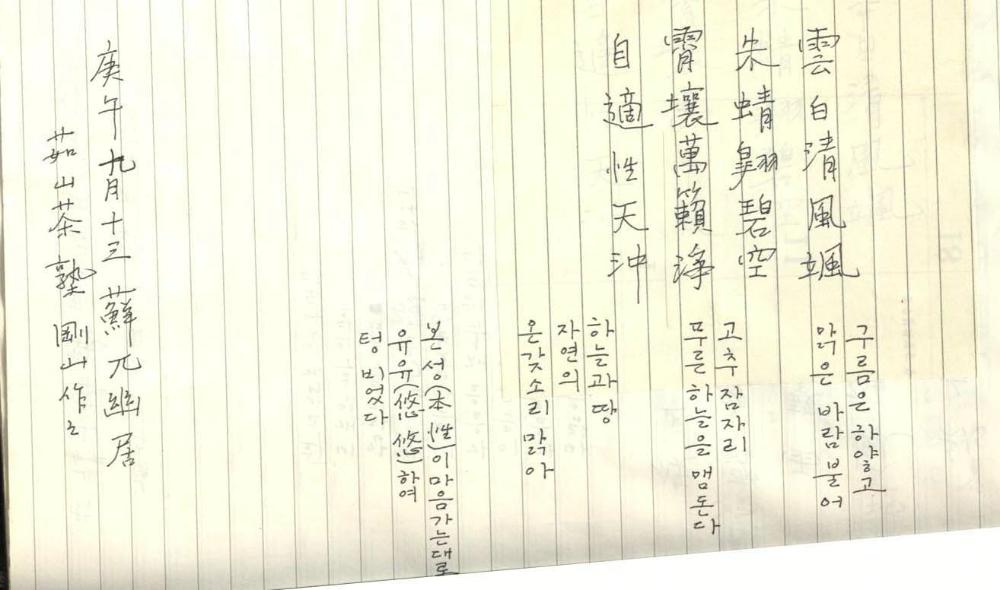 雲白清風颯
朱蜻翱碧空
霄壤萬籟淨
自適性天沖
구름은 하얗고
맑은 바람 불어
고추잠자리
푸른 하늘을 맴돈다
하늘과 땅
자연의
온갖 소리 맑아
본성(本性)이 마음가는대로
유유(悠悠)하여
텅 비었다
庚午 九月十三 蘇兀幽居
茹山茶塾 剛山作之